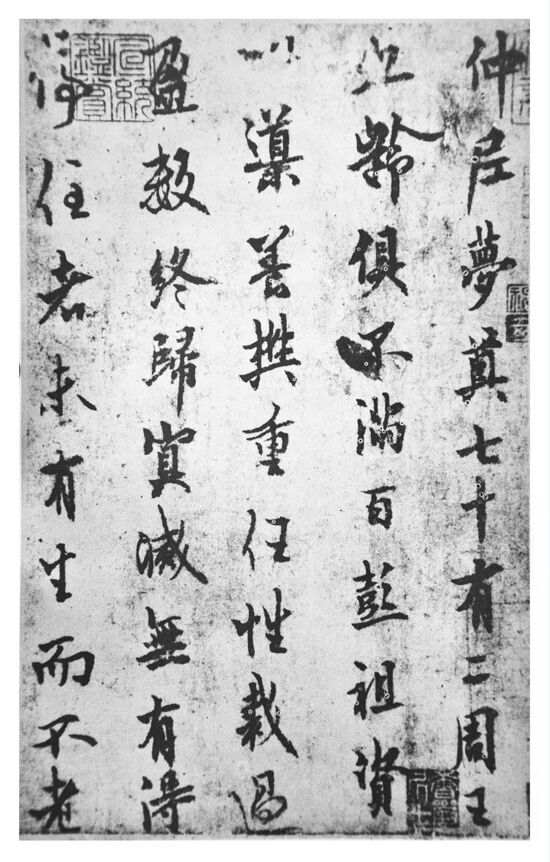 仲尼夢奠七十有二周王
九齡俱不滿百彭祖資
以導養樊重任性裁過
盈數終歸冥滅無有得
停住者未有生而不老